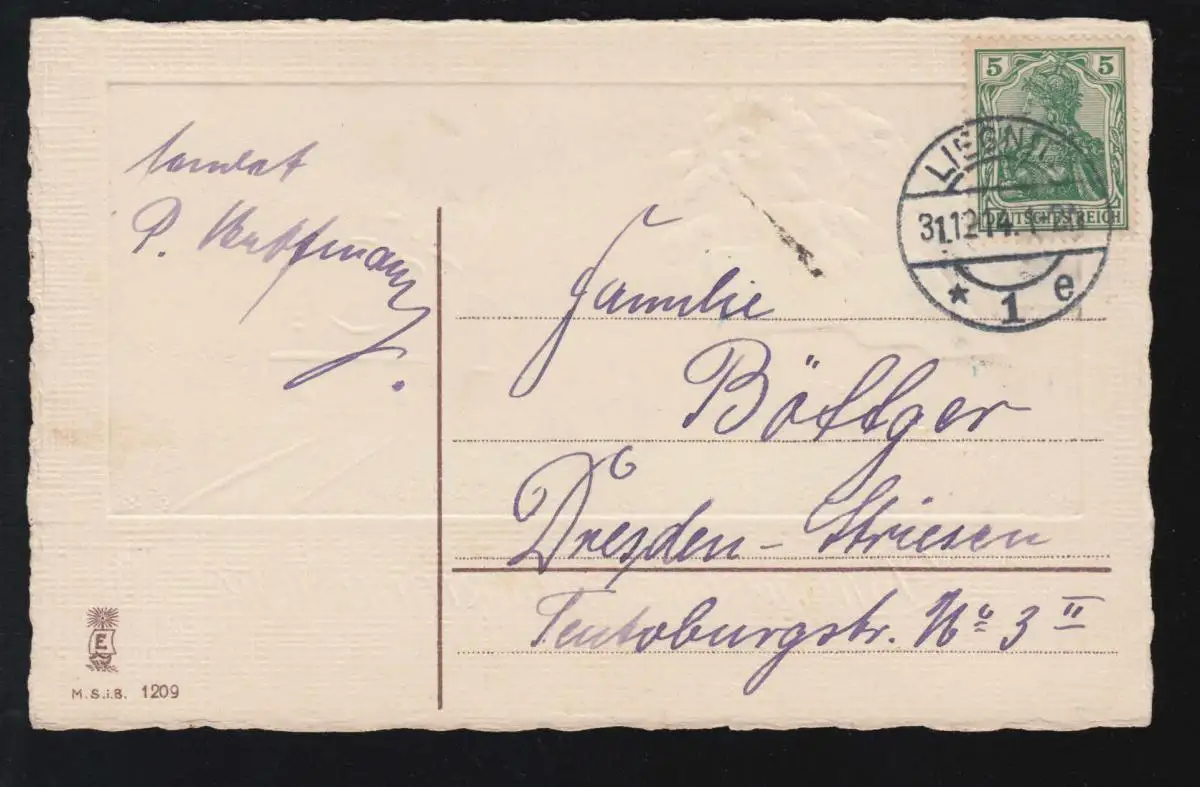 sendet
P.
Familie
Böttger
Dresden - Striesen
Teutoburgstr. No 3 II
5 5
DEUTSCHES REICH
LIEGNITZ
31.12.14.
* 1 e
E
M.S.i.B. 1209